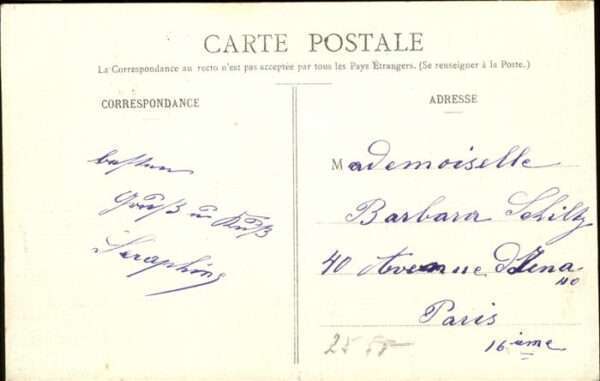 CARTE POSTALE
La Correspondance au recto n'est pas acceptée par tous les Pays Étrangers. (Se renseigner à la Poste.)
CORRESPONDANCE
besten
Gruß u Kuß
Seraphine
ADRESSE
Mademoiselle
Barbara Schiltz
40 Avenue d'Iena
40
Paris
16ième